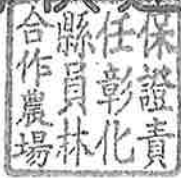 保證責
任彰化
縣員林
合作農
場